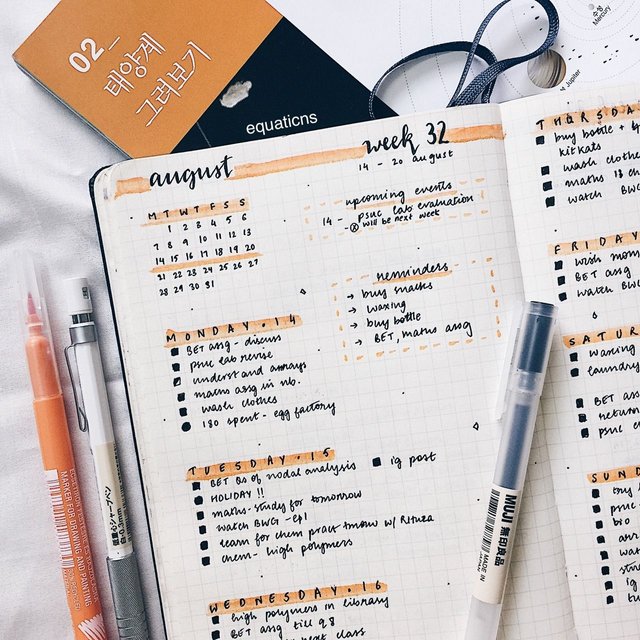 02_
태양계
그려보기
equations
수성
Mercury
Jupiter
august
week 32
14 - 20 august
M T W T F S S
1 2 3 4 5 6
7 8 9 10 11 12 13
14 15 16 17 18 19 20
21 22 23 24 25 26 27
28 29 30 31
upcoming events
14 - psuc lab evaluation
will be next week
reminders
→ buy snacks
→ waxing
→ buy bottle
→ BET, maths assg
MONDAY . 14
BET assg - discuss
psuc lab revise
understand arrays
maths assg in nb.
wash clothes
180 spent - egg factory
TUESDAY . 15
BET bs of nodal analysis
ig post
HOLIDAY !!
maths - study for tomorrow
watch BWG - ep1
learn for chem pract tmrw w/
chem - high polymers
WEDNESDAY . 16
high polymers in library
BET assg till q8
next class
THURSDA
buy bottle +
kitkats
wash clothes
maths 18
watch BWG
FRIDAY
wish mom
BET assg
watch BWG
SATU
waxing
laundry
BET ass
return
psuc
SUND
try
psuc
bio
wate
stud
ig
MARKER FOR DRAWING AND PAINTING
0.3mm
MUJI 無印良品
MADE IN
JAPAN